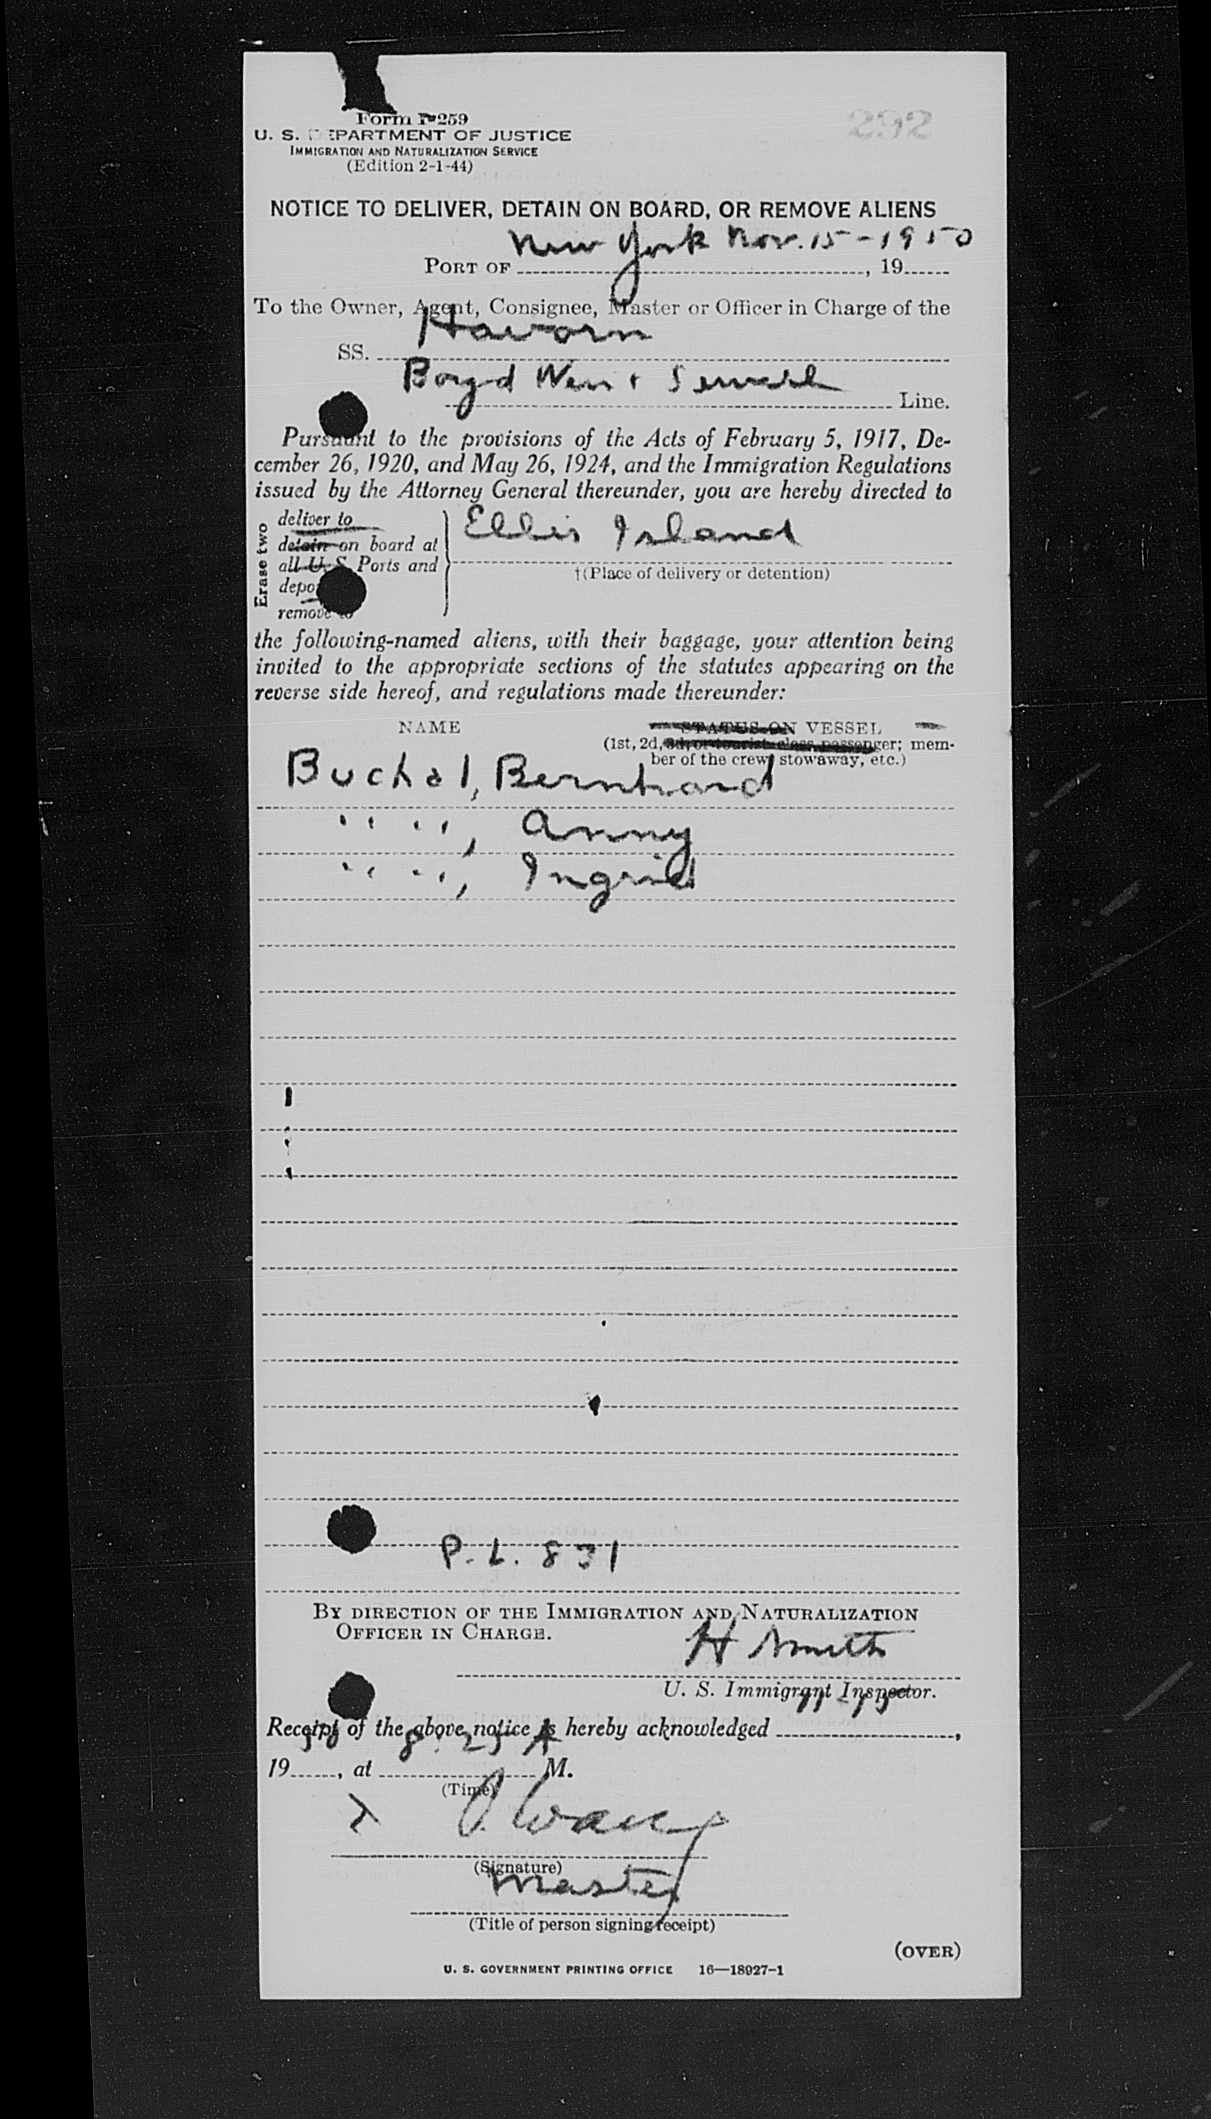 292
Form I-259
U. S. DEPARTMENT OF JUSTICE
IMMIGRATION AND NATURALIZATION SERVICE
(Edition 2-1-44)
NOTICE TO DELIVER, DETAIN ON BOARD, OR REMOVE ALIENS
New York Nov. 15-1950
PORT OF , 19
To the Owner, Agent, Consignee, Master or Officer in Charge of the
SS. Havorn
Boyd Weir &
Line.
Pursuant to the provisions of the Acts of February 5, 1917, De-
cember 26, 1920, and May 26, 1924, and the Immigration Regulations
issued by the Attorney General thereunder, you are hereby directed to
Erase two
deliver to
detain on board at
all U. S. Ports and
remove to
Ellis Island
†(Place of delivery or detention)
the following-named aliens, with their baggage, your attention being
invited to the appropriate sections of the statutes appearing on the
reverse side hereof, and regulations made thereunder:
NAME STATUS ON VESSEL
(1st, 2d, 3d, or tourist class passenger; mem-
ber of the crew, stowaway, etc.)
Buchal, Bernhard
" ", Anny
" ", Ingrid
P.L. 831
BY DIRECTION OF THE IMMIGRATION AND NATURALIZATION
OFFICER IN CHARGE.
H Smith
U. S. Immigrant Inspector.
11-15
Receipt of the above notice is hereby acknowledged ,
50 8:25 A
19 , at M.
(Time)
(Signature)
Master
(Title of person signing receipt)
(OVER)
U. S. GOVERNMENT PRINTING OFFICE 16—18927-1